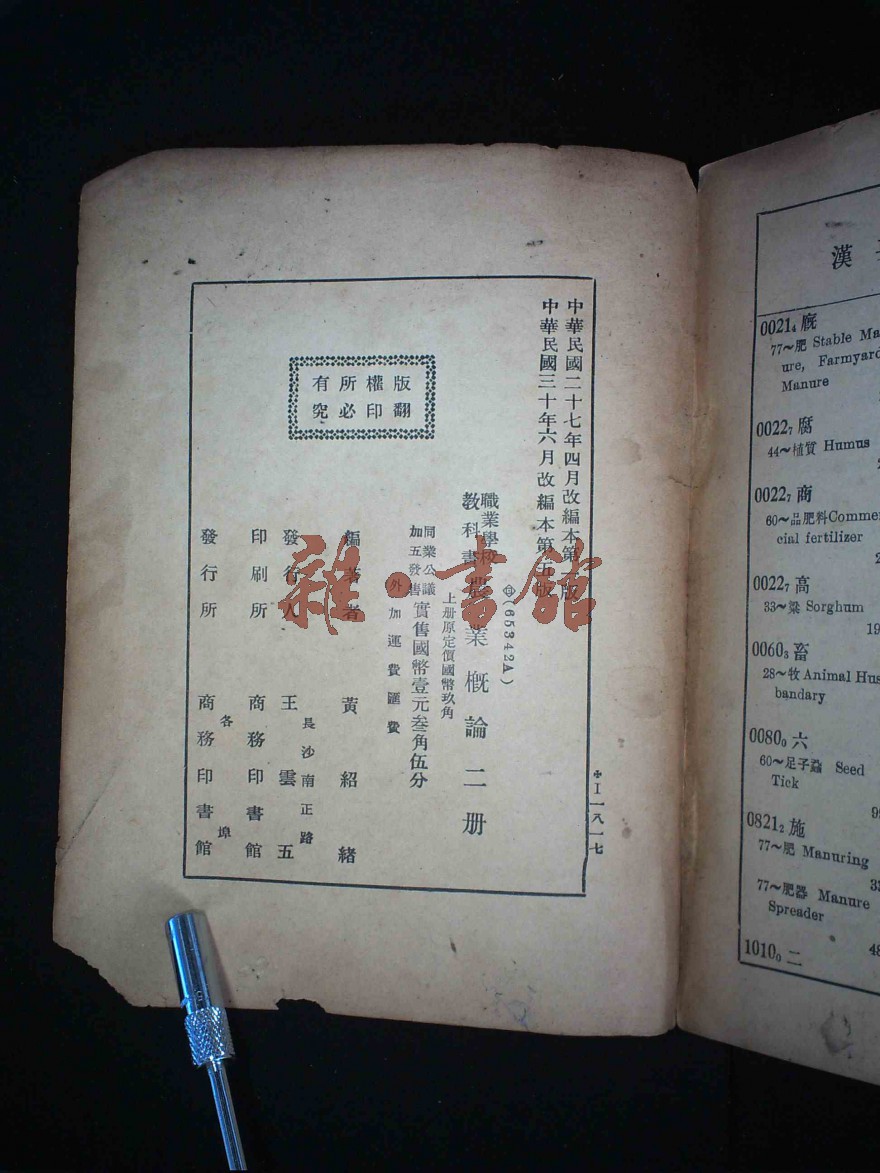 中華民國二十七年四月改編本第一版
中華民國三十年六月改編本第五版
版權所有
翻印必究
(65342A)
職業學校
教科書
農業概論二册
上册原定價國幣玖角
同業公議
加五發售
實售國幣壹元叁角伍分
外加運費匯費
編著者 黃紹緒
發行人 王雲五
長沙南正路
印刷所 商務印書館
發行所 商務印書館
各埠
雜·書館
漢
0021₄ 廐
77～肥 Stable Ma
ure, Farmyard
Manure
0022₇ 腐
44～植質 Humus
0022₇ 商
60～品肥料Commer
cial fertilizer
0022₇ 高
33～粱 Sorghum
19
0060₃ 畜
28～牧 Animal Hus
bandary
0080₀ 六
60～足子蝨 Seed
Tick
0821₂ 施
77～肥 Manuring
77～肥器 Manure
Spreader
1010₀ 二
48